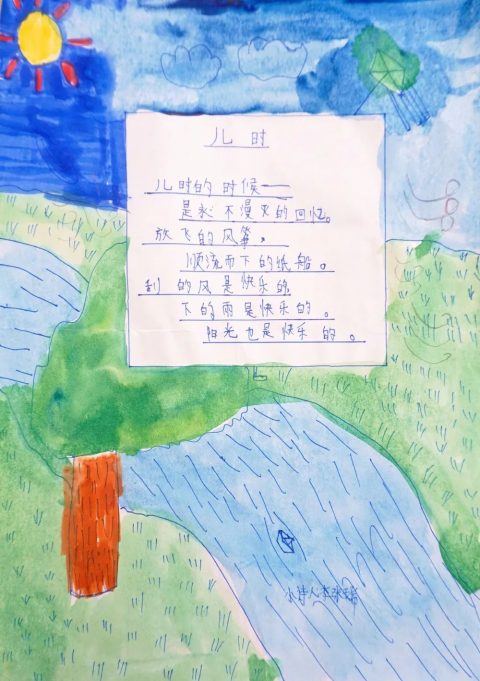 儿时
儿时的时候——
是永不漫灭的回忆。
放飞的风筝,
顺流而下的纸船。
刮的风是快乐的
下的雨是快乐的。
阳光也是快乐的。
小诗人